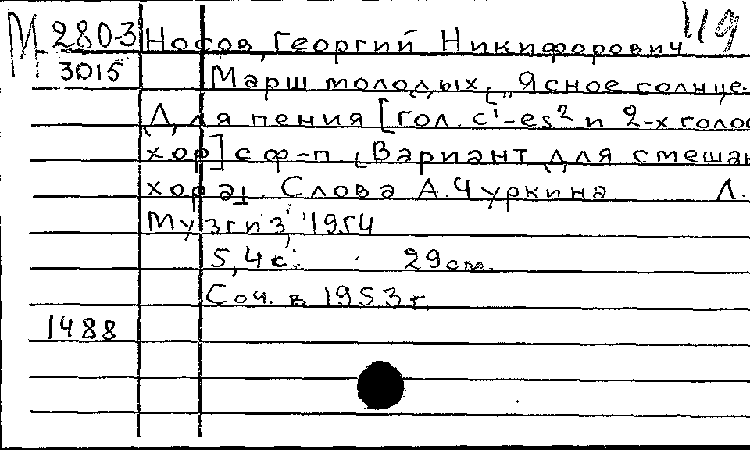 М 280-3 Носов, Георгий Никифорович 119
3015 Марш молодых. „Ясное солнце.
Для пения [гол. c¹-es² и 2-х голос
хор] с ф-п. [Вариант для смешан
хора]. Слова А. Чуркина Л.
Музгиз, 1954
5,4 с. 29 см.
Соч. в 1953 г.
1488